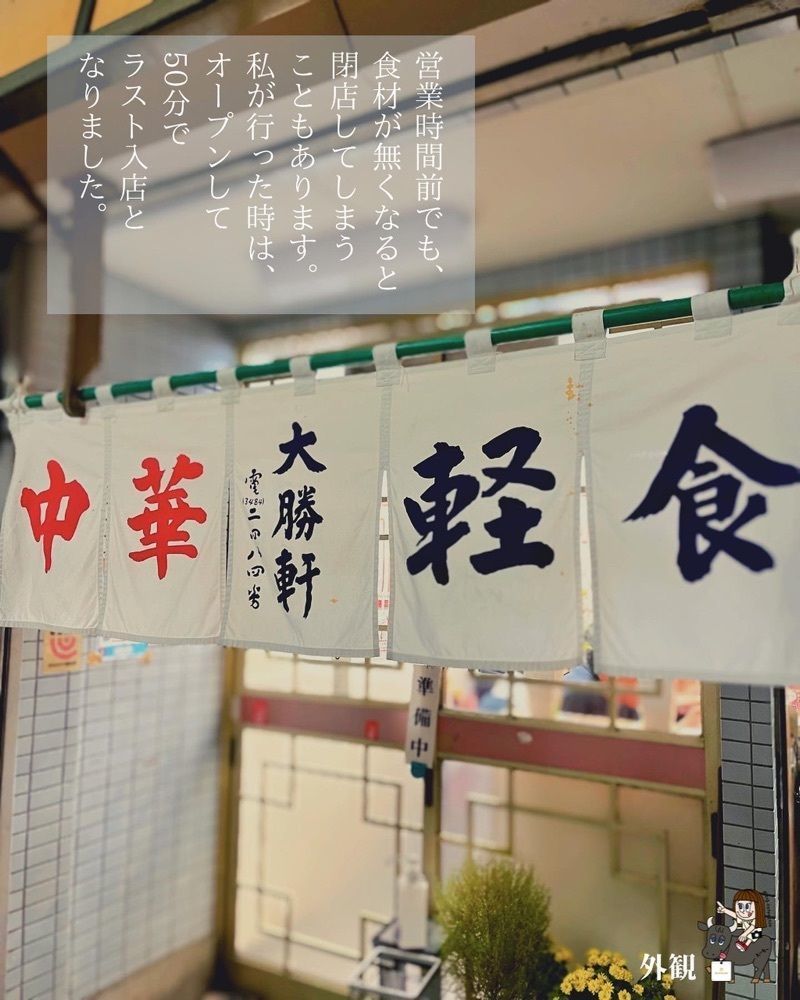 営業時間前でも、
食材が無くなると
閉店してしまう
こともあります。
私が行った時は、
オープンして
50分で
ラスト入店と
なりました。
中華
大勝軒
電(3484)二四八四番
軽食
準備中
外観